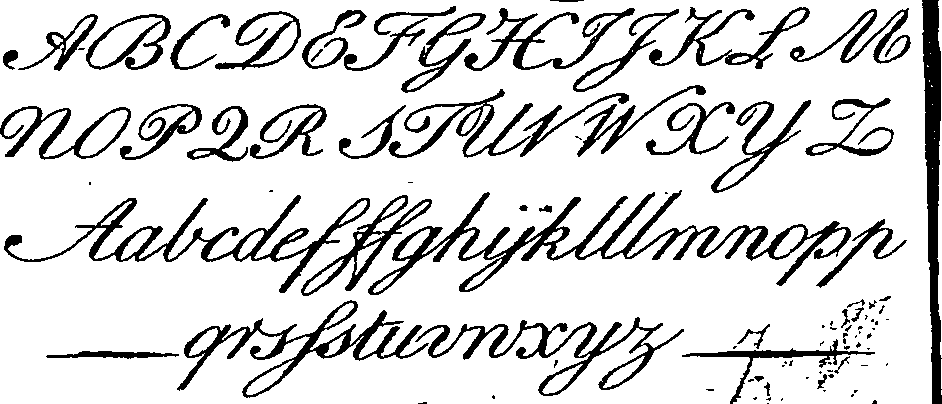 ABCDEFGHIJKLM
NOPQRSTUVWXYZ
Aabcdeffffghijklllmnopp
qrsſstuvwxyz